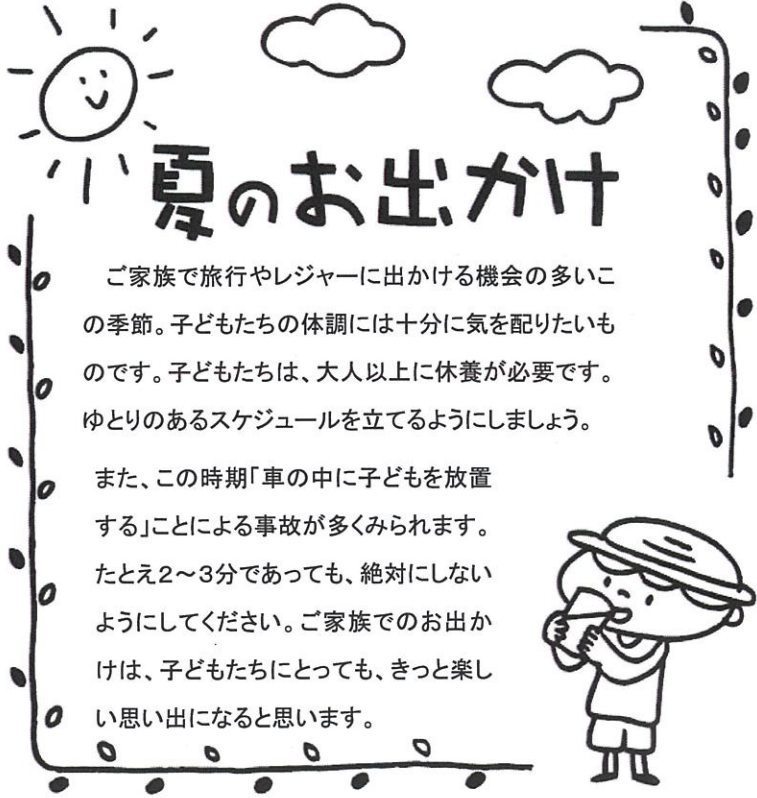 夏のお出かけ
ご家族で旅行やレジャーに出かける機会の多いこ
の季節。子どもたちの体調には十分に気を配りたいも
のです。子どもたちは、大人以上に休養が必要です。
ゆとりのあるスケジュールを立てるようにしましょう。
また、この時期「車の中に子どもを放置
する」ことによる事故が多くみられます。
たとえ2～3分であっても、絶対にしない
ようにしてください。ご家族でのお出か
けは、子どもたちにとっても、きっと楽し
い思い出になると思います。